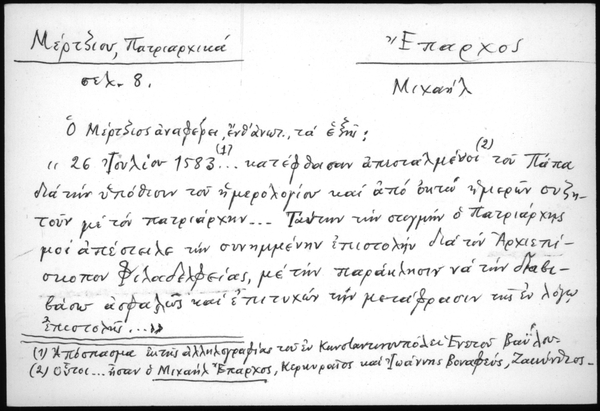 Μέρτζιου, Πατριαρχικά
Ἔπαρχος
σελ. 8.
Μιχαήλ
Ὁ Μέρτζιος ἀναφέρει, ἔνθ' ἀνωτ., τά ἑξῆς:
« 26 Ἰουλίου 1583 (1)... κατέφθασαν ἀπεσταλμένοι (2) τοῦ Πάπα
διά τήν ὑπόθεσιν τοῦ ἡμερολογίου καί ἀπό ὀκτώ ἡμερῶν συζη-
τοῦν μέ τόν πατριάρχην... Ταύτην τήν στιγμήν ὁ Πατριάρχης
μοί ἀπέστειλε τήν συνημμένην ἐπιστολήν διά τόν Ἀρχιεπί-
σκοπον Φιλαδελφείας, μέ τήν παράκλησιν νά τήν διαβι-
βάσω ἀσφαλῶς καί ἐπιτυχών τήν μετάφρασιν τῆς ἐν λόγῳ
ἐπιστολῆς...»
(1) Ἀπόσπασμα ἐκ τῆς ἀλληλογραφίας τοῦ ἐν Κωνσταντινουπόλει Ἐνετοῦ Βαΐλου.
(2) Οὗτοι... ἦσαν ὁ Μιχαήλ Ἔπαρχος, Κερκυραῖος καί Ἰωάννης Βοναφεύς, Ζακύνθιος.